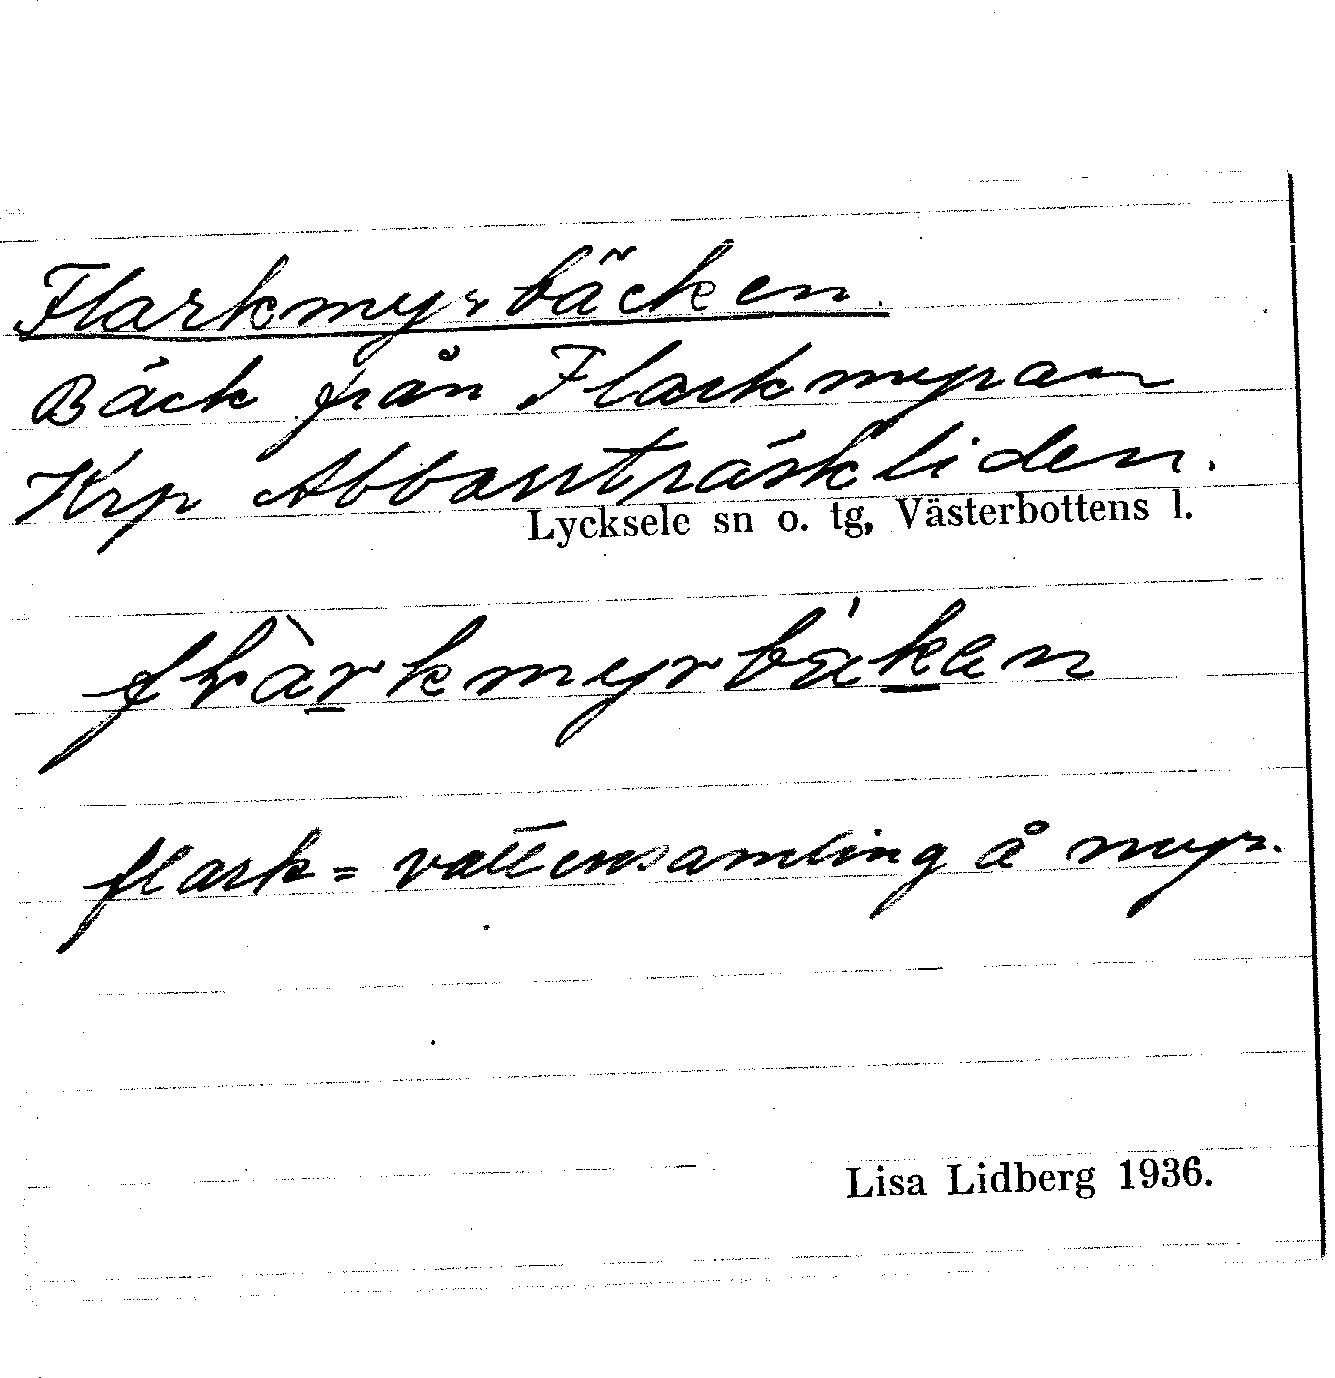 Flarkmyrbäcken.
Bäck från Flarkmyran
Krp Abborrträskliden.
Lycksele sn o. tg, Västerbottens l.
flàrkmyrbä́kan
flark = vattensamling å myr.
Lisa Lidberg 1936.